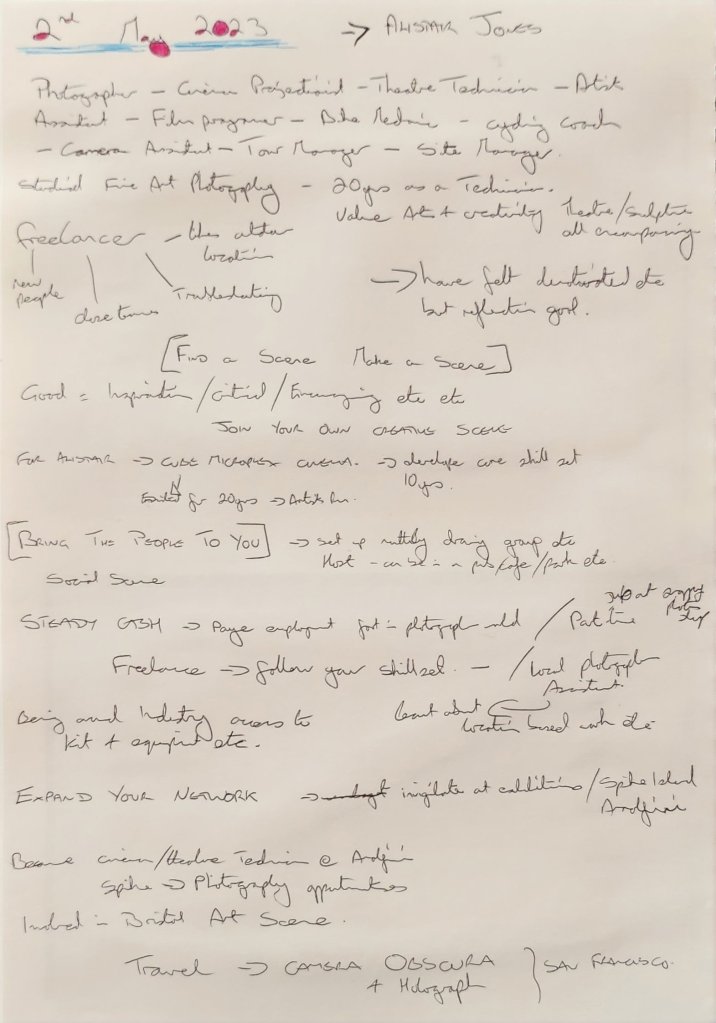 2nd May 2023 → ALISTAIR JONES
Photographer – Cinema Projectionist – Theatre Technician – Artist
Assistant – Film programer – Bike Mechanic – cycling coach
– Camera Assistant – Tour Manager – Site Manager.
Studied Fine Art Photography – 20yrs as a Technician.
Value Art + creativity Theatre/Sculpture
all encompassing
freelancer – likes
location
new people
Troubleshooting
→ have felt etc
but reflection good.
[FIND a Scene Make a Scene]
Good = Inspiration/critical/Encouraging etc etc
JOIN YOUR OWN CREATIVE SCENE
FOR ALISTAIR → CUBE MICROPLEX CINEMA. → develope core skill set
10yrs.
for 20yrs → Artists run.
[BRING THE PEOPLE TO YOU] → set up drawing group etc
Host – can be in a pub/cafe/park etc.
Social Scene
STEADY → employment first in photography world / Part time job at photo shop
Freelance → follow your skillset. – / local photographer
Assistant.
Being around Industry access to
kit + equipment etc.
learnt about
location based work etc
EXPAND YOUR NETWORK → invigilate at exhibitions/Spike Island
Arnolfini
Became cinema/theatre Technician @ Arnolfini
Spike → Photography opportunities
Involved in Bristol Art Scene.
Travel → CAMERA OBSCURA } SAN FRANCISCO.
+ Holograph